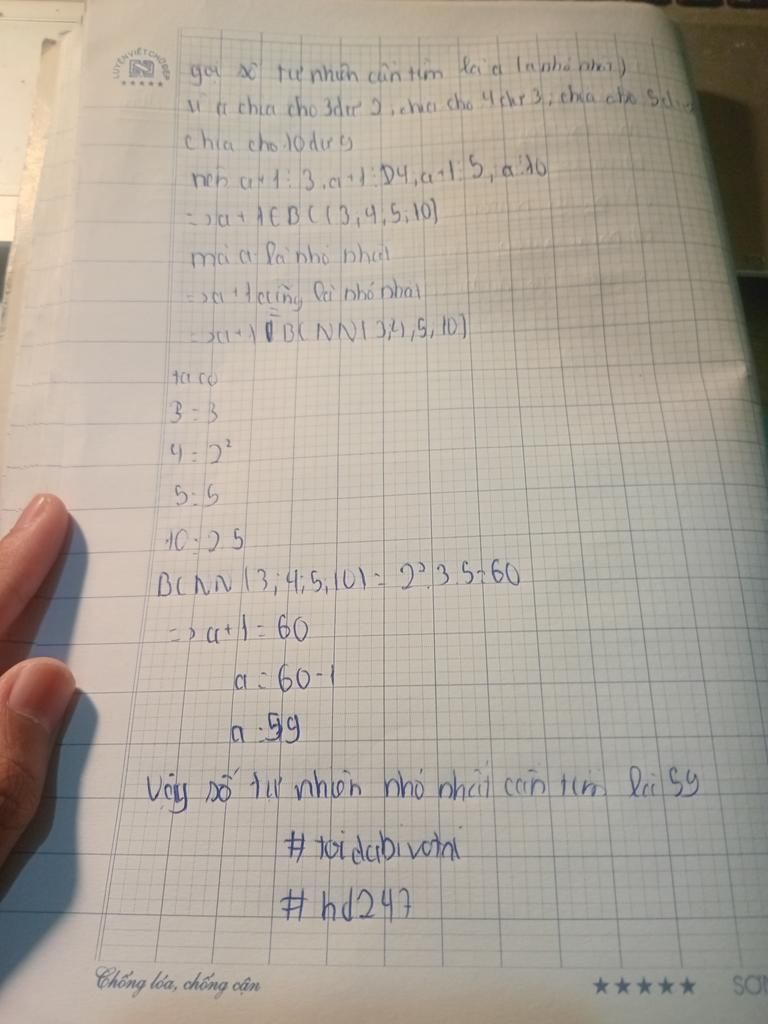 LUYỆN VIẾT CHỮ ĐẸP
gọi số tự nhiên cần tìm là a (a nhỏ nhất)
vì a chia cho 3 dư 2, chia cho 4 dư 3, chia cho 5 dư
chia cho 10 dư 9
nên a+1:3, a+1:4, a+1:5, a:10
=> a+1 ∈ BC(3,4,5,10)
mà a là nhỏ nhất
=> a+1 cũng là nhỏ nhất
=> a+1 = BCNN(3,4,5,10)
ta có
3=3
4=2²
5=5
10=2.5
BCNN(3;4;5,10)=2².3.5=60
=> a+1=60
a=60-1
a=59
Vậy số tự nhiên nhỏ nhất cần tìm là 59
#toidabivotri
#hd247
Chống lóa, chống cận